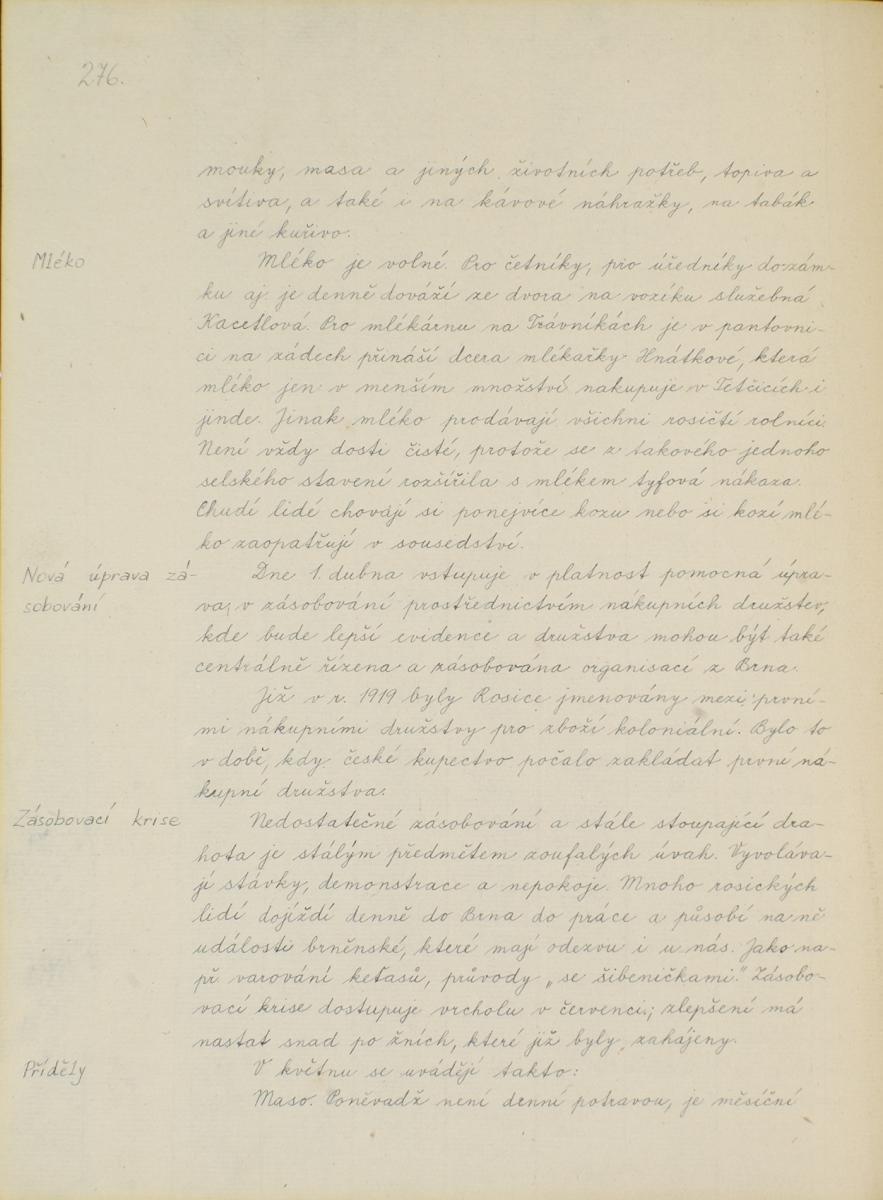 276.
mouky, masa a jiných životních potřeb, topiva a
svítiva, a také i na kávové náhražky, na tabák
a jiné kuřivo.
Mléko
Mléko je volné. Pro četníky, pro úředníky do zám-
ku aj. je denně dováží ze dvora na vozíku služebná
Kacetlová. Pro mlékárnu na Trávníkách je v pantovni-
ci na zádech přináší dcera mlékařky Hnátkové, která
mléko jen v menším množství nakupuje v Tetčicích i
jinde. Jinak mléko prodávají všichni rosičtí rolníci.
Není vždy dosti čisté, protože se z takového jednoho
selského stavení rozšířila s mlékem tyfová nákaza.
Chudí lidé chovají si ponejvíce kozu nebo si kozí mlé-
ko zaopatřují v sousedství.
Nová úprava zá-
sobování
Dne 1. dubna vstupuje v platnost pomocná úpra-
va v zásobování prostřednictvím nákupních družstev,
kde bude lepší evidence a družstva mohou být také
centrálně řízena a zásobována organisací z Brna.
Již v r. 1919 byly Rosice jmenovány mezi první-
mi nákupními družstvy pro zboží koloniální. Bylo to
v době, kdy české kupectvo počalo zakládat první ná-
kupní družstva.
Zásobovací krise
Nedostatečné zásobování a stále stoupající dra-
hota je stálým předmětem zoufalých úvah. Vyvoláva-
jí stávky, demonstrace a nepokoje. Mnoho rosických
lidí dojíždí denně do Brna do práce a působí na ně
události brněnské, které mají odezvu i u nás. Jako na-
př. varování keťasů, průvody „se šibeničkami." Zásobo-
vací krise dostupuje vrcholu v červenci; zlepšení má
nastat snad po žních, které již byly zahájeny.
Příděly
V květnu se uvádějí takto:
Maso. Poněvadž není denní potravou, je měsíční